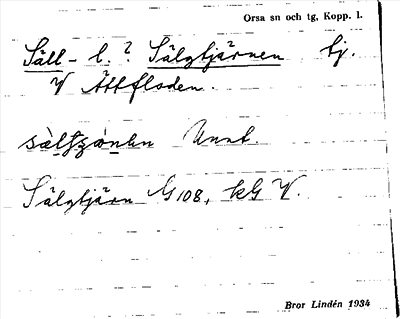 Orsa sn och tg, Kopp. l.
Säll- l.? Sälgtjärnen tj.
V Ättfloden.
Unnt.
Sälgtjärn G 108, kG V.
Bror Lindén 1934